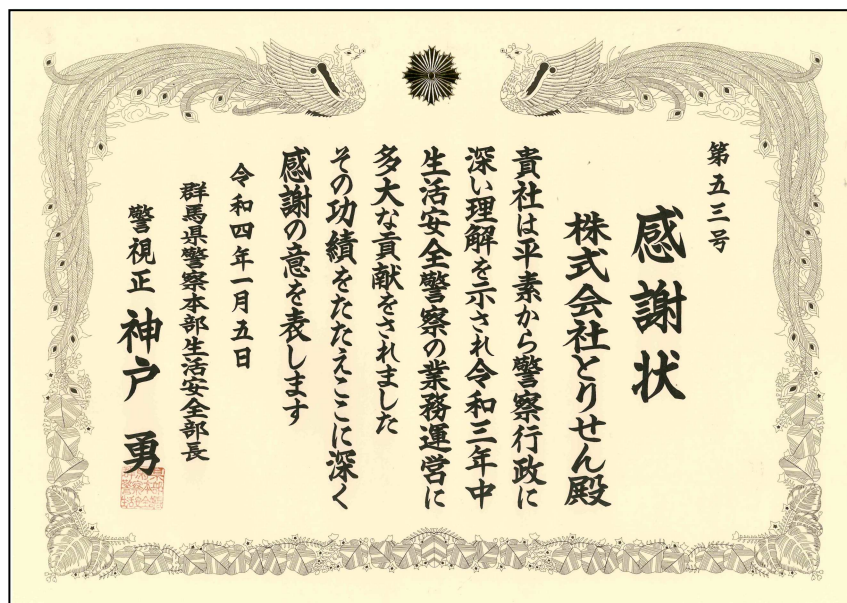 第五三号
感謝状
株式会社とりせん殿
貴社は平素から警察行政に
深い理解を示され令和三年中
生活安全警察の業務運営に
多大な貢献をされました
その功績をたたえここに深く
感謝の意を表します
令和四年一月五日
群馬県警察本部生活安全部長
警視正 神戸 勇